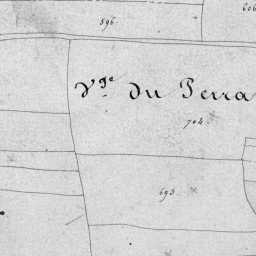 596.
606
V.ge du Terra
704.
693.